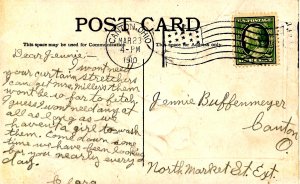 POST CARD
This space may be used for Communication
This space for Address only.
CANTON, OHIO
MAR 23
4-PM
1910
Dear Jennie:- I wont need
your curtain stretchers
can get Mrs. Millers them
wont be so far to fetch.
guess I wont need any at
all as long as we
haven't a girl to wash
them. Come down some
time we have been looking
for you nearly every
day.
Clara
Jennie Buffenmeyer
Canton
O.
North Market St. Ext.